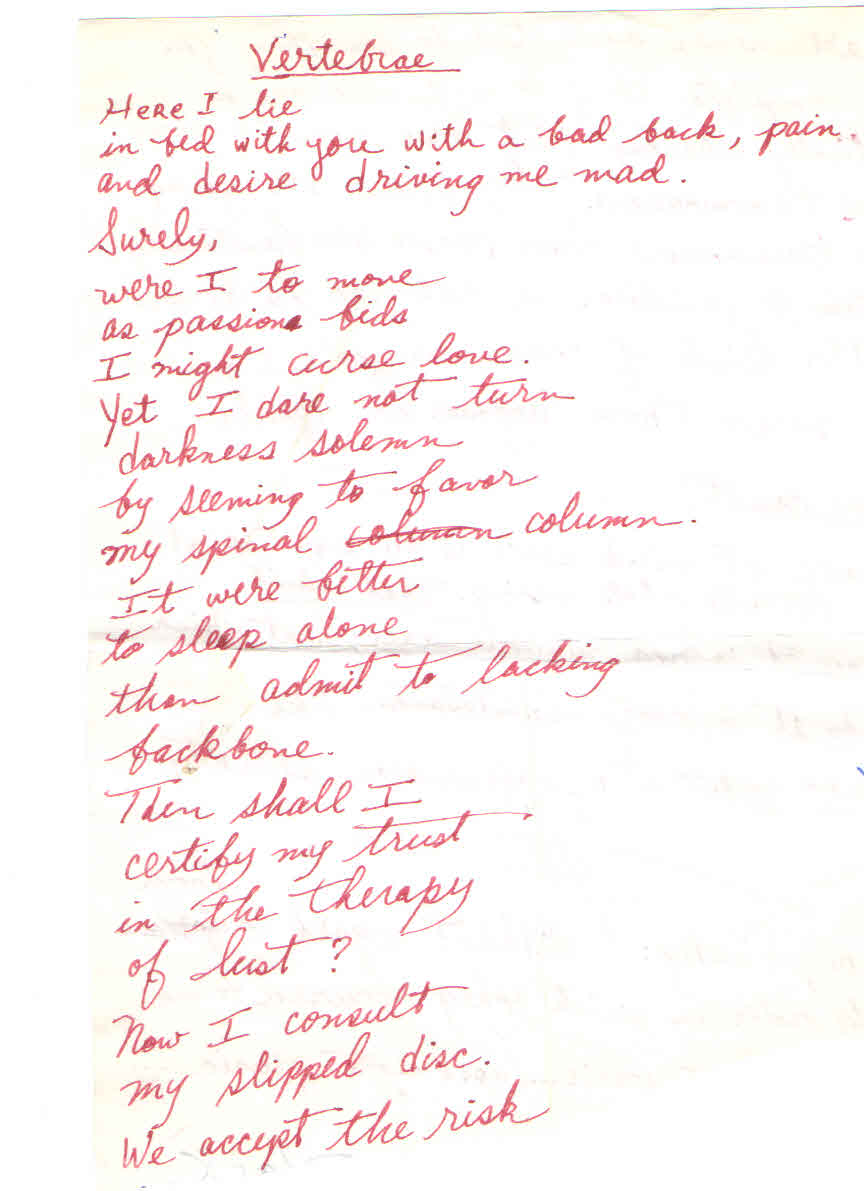 Vertebrae
Here I lie
in bed with you with a bad back, pain
and desire driving me mad.
Surely,
were I to move
as passion bids
I might curse love.
Yet I dare not turn
darkness solemn
by seeming to favor
my spinal column column.
It were better
to sleep alone
than admit to lacking
backbone.
Then shall I
certify my trust
in the therapy
of lust?
Now I consult
my slipped disc.
We accept the risk